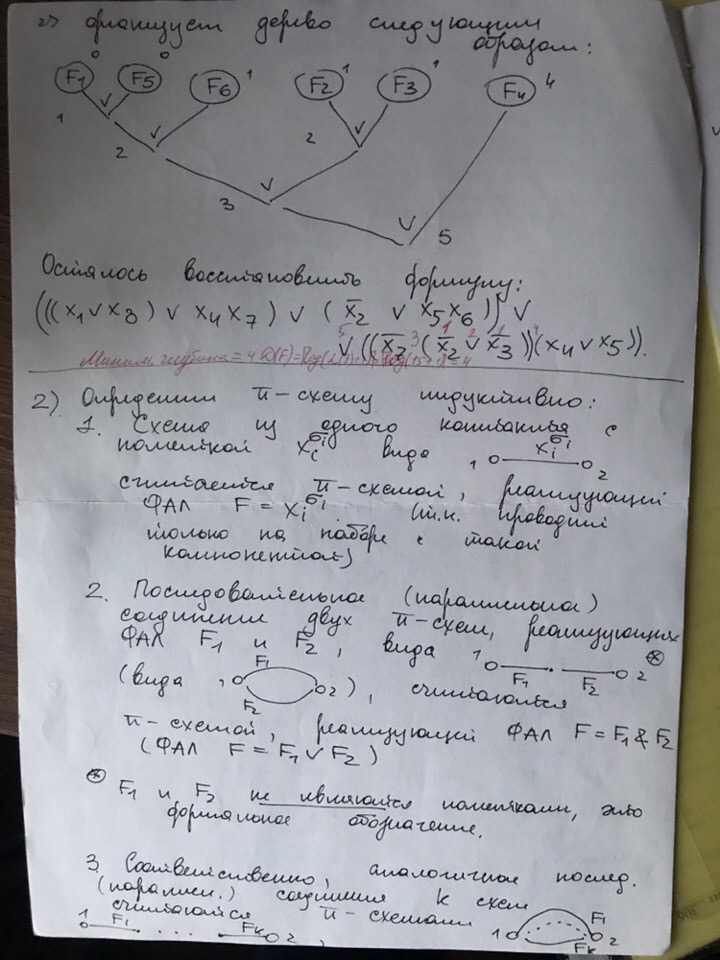 2) организует дерево следующим
образом:
F1 0 F5 0 F6 1 F2 1 F3 1 F4 4
1 ∨ 2 ∨ 2 ∨
3 ∨ ∨ 5
Осталось восстановить формулу:
(((x1 ∨ x3) ∨ x4x7) ∨ (x̄2 ∨ x5x6)) ∨
∨ ((x̄3 (x̄2 ∨ x̄3))(x4 ∨ x5)).
Миним. глубина = 4
2) Определим π-схему индуктивно:
1. Схема из одного контакта с
пометкой xiσi вида 1 xiσi 2
считается π-схемой, реализующей
ФАЛ F = xiσi. (т.к. проводит
только на наборе с такой
компонентой)
2. Последовательное (параллельное)
соединение двух π-схем, реализующих
ФАЛ F1 и F2, вида 1 F1 F2 2 *
(вида 1 F1 F2 2), считается
π-схемой, реализующей ФАЛ F = F1 & F2
(ФАЛ F = F1 ∨ F2)
* F1 и F2 не являются пометками, это
формальное обозначение.
3. Соответственно, аналогичное послед.
(паралл.) соединения k схем
считаются π-схемами 1 F1 Fk 2
1 F1 . . . Fk 2,